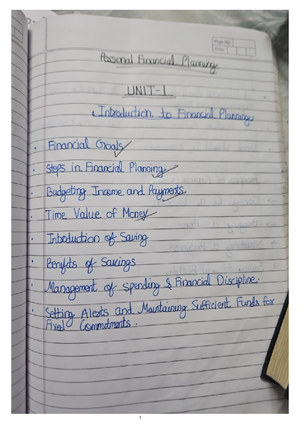 Personal Financial Planning
UNIT-1
Introduction to Financial Planning
Financial Goals
Steps in Financial Planning
Budgeting Income and Payments
Time Value of Money
Introduction of Saving
Benefits of Savings
Management of spending & Financial Discipline.
Setting Alerts and Maintaining Sufficient Funds for
Fixed Commitments.
1